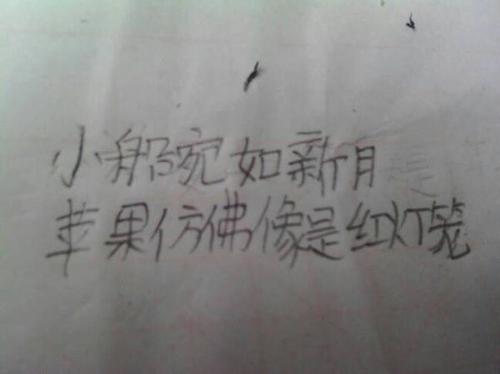 小船碗如新月
苹果仿佛像是红灯笼